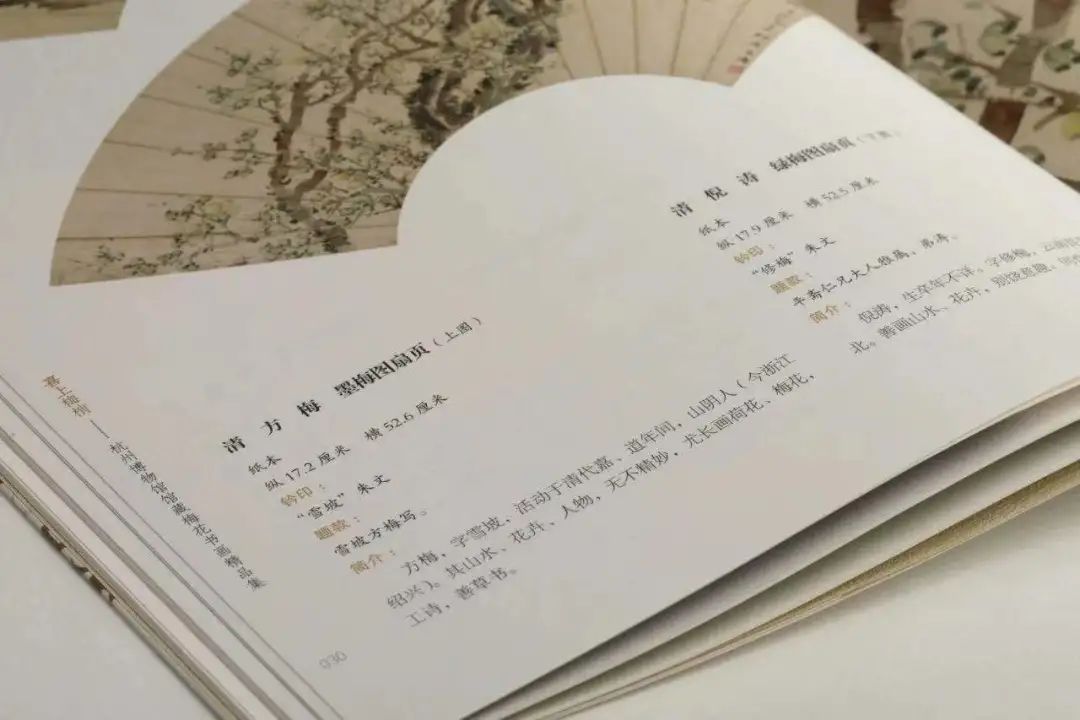 喜上梅梢——杭州博物馆馆藏梅花书画精品集
清 方 梅 墨梅图扇页（上图）
纸本
纵 17.2 厘米 横 52.6 厘米
钤印：
“雪坡”朱文
题款：
雪坡方梅写。
简介：
方梅，字雪坡，活动于清代嘉、道年间，山阴人（今浙江
绍兴）。其山水、花卉、人物，无不精妙，尤长画荷花、梅花，
工诗，善草书。
030
清 倪 涛 绿梅图扇页（下图）
纸本
纵 17.9 厘米 横 52.5 厘米
钤印：
“修梅”朱文
题款：
平斋仁兄大人雅属，弟涛。
简介：
倪涛，生卒年不详。字修梅，
北。善画山水、花卉，别饶意趣，